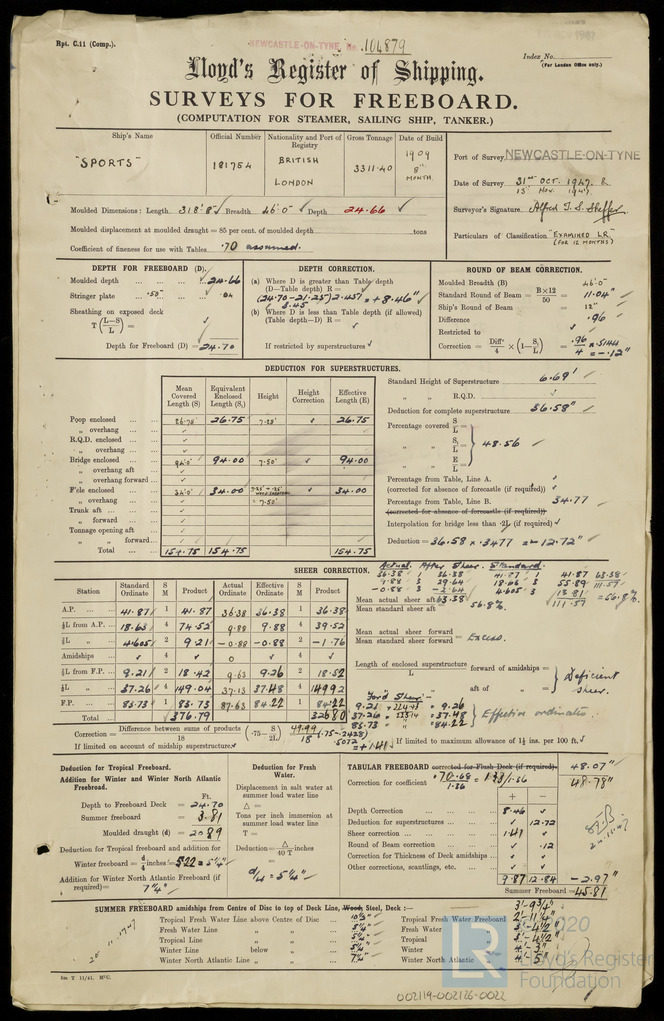 Rpt. C.11 (Comp.).
NEWCASTLE-ON-TYNE. No. 104879
Index No.
(For London Office only.)
Lloyd's Register of Shipping.
SURVEYS FOR FREEBOARD.
(COMPUTATION FOR STEAMER, SAILING SHIP, TANKER.)
Ship's Name
Official Number
Nationality and Port of Registry
Gross Tonnage
Date of Build
"SPORTS"
181754
BRITISH
LONDON
3311.40
1909
8TH
MONTH
Port of Survey NEWCASTLE-ON-TYNE
Date of Survey 31st OCT. 1947. &
13 Nov. 1947
Surveyor's Signature
Particulars of Classification "EXAMINED LR."
(FOR 12 MONTHS)
Moulded Dimensions: Length 318'8" Breadth 46'.0" Depth 24.66
Moulded displacement at moulded draught = 85 per cent. of moulded depth tons
Coefficient of fineness for use with Tables .70 assumed.
DEPTH FOR FREEBOARD (D).
Moulded depth ... 24.66
Stringer plate ... .50" ... .04
Sheathing on exposed deck
T (L-S/L) =
Depth for Freeboard (D) = 24.70
DEPTH CORRECTION.
(a) Where D is greater than Table depth
(D—Table depth) R =
(24.70-21.25) 2.451 = +8.46"
3.45
(b) Where D is less than Table depth (if allowed)
(Table depth—D) R =
If restricted by superstructures
ROUND OF BEAM CORRECTION.
Moulded Breadth (B) 46'.0"
Standard Round of Beam = B×12/50 = 11.04"
Ship's Round of Beam = 12"
Difference .96
Restricted to
Correction = Diff/4 × (1-S₁/L) = .96/4 × .5144 = -.12"
DEDUCTION FOR SUPERSTRUCTURES.
Mean Covered Length (S)
Equivalent Enclosed Length (S₁)
Height
Height Correction
Effective Length (E)
Poop enclosed 26.75' 26.75 7.28' 26.75
„ overhang
R.Q.D. enclosed
„ overhang
Bridge enclosed 94.0' 94.00 7.50' 94.00
„ overhang aft
„ overhang forward
F'cle enclosed 34.0' 34.00 34.00
„ overhang = 7.50'
Trunk aft
„ forward
Tonnage opening aft
„ „ forward
Total 154.75 154.75 154.75
Standard Height of Superstructure 6.69'
„ „ R.Q.D.
Deduction for complete superstructure 36.58"
Percentage covered S/L =
„ „ S₁/L = 48.56
„ „ E/L =
Percentage from Table, Line A.
(corrected for absence of forecastle (if required))
Percentage from Table, Line B. 34.77
(corrected for absence of forecastle (if required))
Interpolation for bridge less than .2L (if required)
Deduction = 36.58 × .3477 = -12.72"
SHEER CORRECTION.
Station
Standard Ordinate
S M
Product
Actual Ordinate
Effective Ordinate
S M
Product
A.P. 41.87 1 41.87 36.38 36.38 1 36.38
⅙L from A.P. 18.63 4 74.52 9.88 9.88 4 39.52
⅓L „ 4.605 2 9.21 -0.88 -0.88 2 -1.76
Amidships 4 0 4
⅓L from F.P. 9.21 2 18.42 9.63 9.26 2 18.52
⅙L „ 37.26 4 149.04 37.13 37.48 4 149.92
F.P. 83.73 1 83.73 87.63 84.22 1 84.22
Total 376.79 326.80
Actual. After Sheer. Standard.
36.38 36.38 41.87 1 41.87 63.38
9.88 3 29.64 18.63 3 55.89 111.57
-0.88 3 -2.64 4.605 3 13.81 = 56.8%
63.38 111.57
Mean actual sheer aft
Mean standard sheer aft = 56.8%
Mean actual sheer forward
Mean standard sheer forward = Excess.
Length of enclosed superstructure
L forward of amidships =
„ aft of „ =
Deficient sheer.
Ford Sheer -
9.21 = 9.26
37.26 = 37.48
83.73 = 84.22
Effective ordinates.
Correction = Difference between sums of products/18 (.75 - S/2L) = 49.99/18 (.75-.2428)
.5072
= +1.41
If limited on account of midship superstructure.
If limited to maximum allowance of 1½ ins. per 100 ft.
Deduction for Tropical Freeboard.
Addition for Winter and Winter North Atlantic Freeboard.
Ft.
Depth to Freeboard Deck = 24.70
Summer freeboard = 3.81
Moulded draught (d) = 20.89
Deduction for Tropical freeboard and addition for
Winter freeboard = d/4 inches = 5.22 = 5¼"
Addition for Winter North Atlantic Freeboard (if required) = 7¼"
Deduction for Fresh Water.
Displacement in salt water at summer load water line
Δ =
Tons per inch immersion at summer load water line
T =
Deduction = Δ/40 T inches
d/4 = 5¼"
TABULAR FREEBOARD corrected for Flush Deck (if required) 48.07"
Correction for coefficient .70+.68/1.36 = 1.38/1.36 48.78"
+ −
Depth Correction 8.46
Deduction for superstructures 12.72
Sheer correction 1.41
Round of Beam correction .12
Correction for Thickness of Deck amidships
Other corrections, scantlings, etc.
9.87 12.84 -2.97"
Summer Freeboard = 45.81
SUMMER FREEBOARD amidships from Centre of Disc to top of Deck Line, Wood, Steel, Deck :—
3'-9¾"
Tropical Fresh Water Line above Centre of Disc 10½" Tropical Fresh Water Freeboard 2'-11¼"
Fresh Water Line „ „ 5¼" Fresh Water „ 3'-4½"
Tropical Line „ „ 5¼" Tropical „ 3'-4½"
Winter Line below „ 5¼" Winter „ 4'-3"
Winter North Atlantic Line „ „ 7¼" Winter North Atlantic „ 4'-5"
© 2020
LR
Lloyd's Register
Foundation
002119-002126-0022